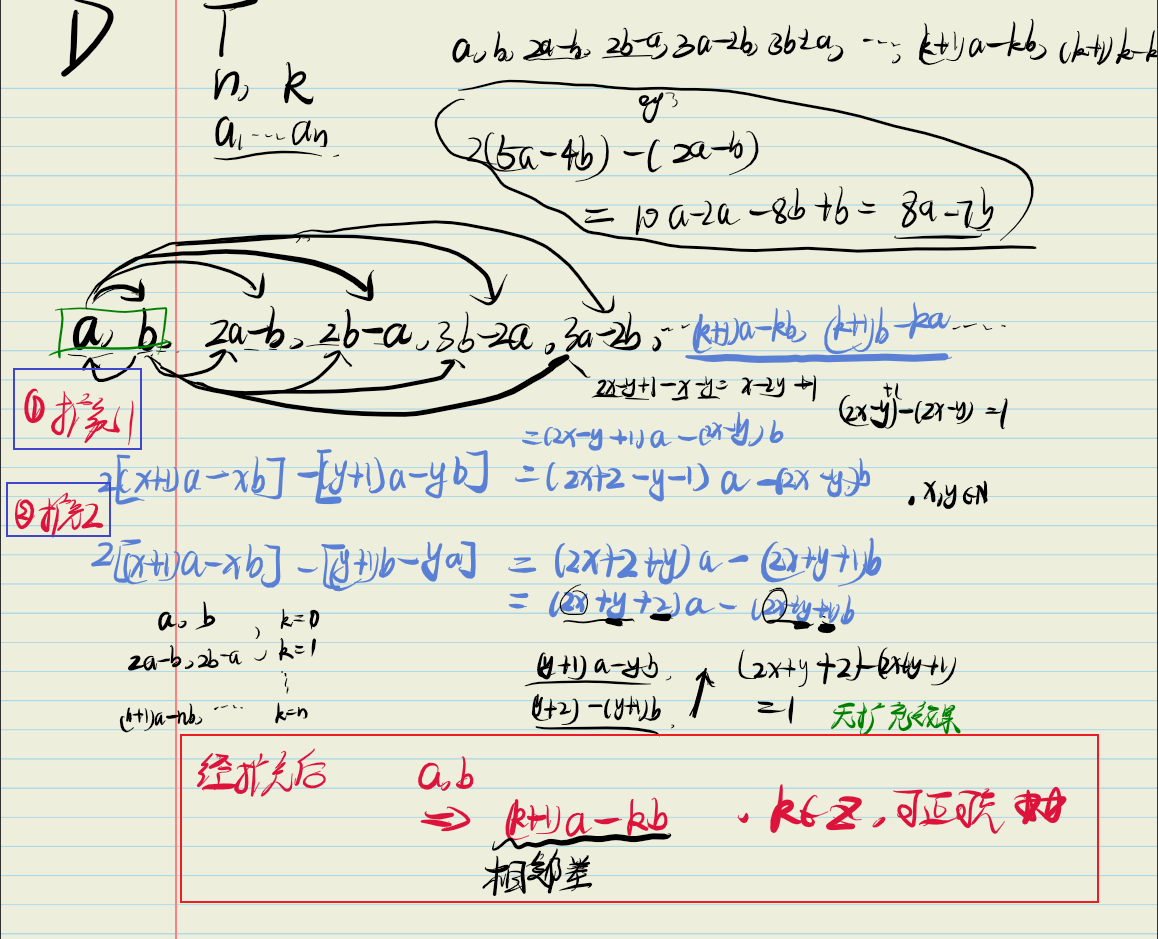 D T
n, k
a, b, 2a-b, 2b-a, 3a-2b, 3b-2a, ..., (k+1)a-kb, (k+1)
a1 ... an
2(5a-4b)-(2a-b)
= 10a-2a-8b+b = 8a-7b
a, b, 2a-b, 2b-a, 3b-2a, 3a-2b, ... (k+1)a-kb, (k+1)b-ka ....
2x-y+1-x-y= x-2y+1
(2x-y+1)-(2x-y) = 1
① 扩充1
=(2x-y+1)a-(2x-y)b
2[(x+1)a-xb]-[(y+1)a-yb] = (2x+2-y-1)a-(2x-y)b
. x,y∈N
② 扩充2
2[(x+1)a-xb]-[(y+1)b-ya] = (2x+2+y)a-(2x+y+1)b
= (2x+y+2)a-(2x+y+1)b
a, b , k=0
2a-b, 2b-a , k=1
(n+1)a-nb, .... k=n
(y+1)a-yb,
(y+2)-(y+1)b,
(2x+y+2)-(2x+y+1)
=1
无扩充效果
经扩充后 a,b
=> (k+1)a-kb . k∈Z,
相邻差